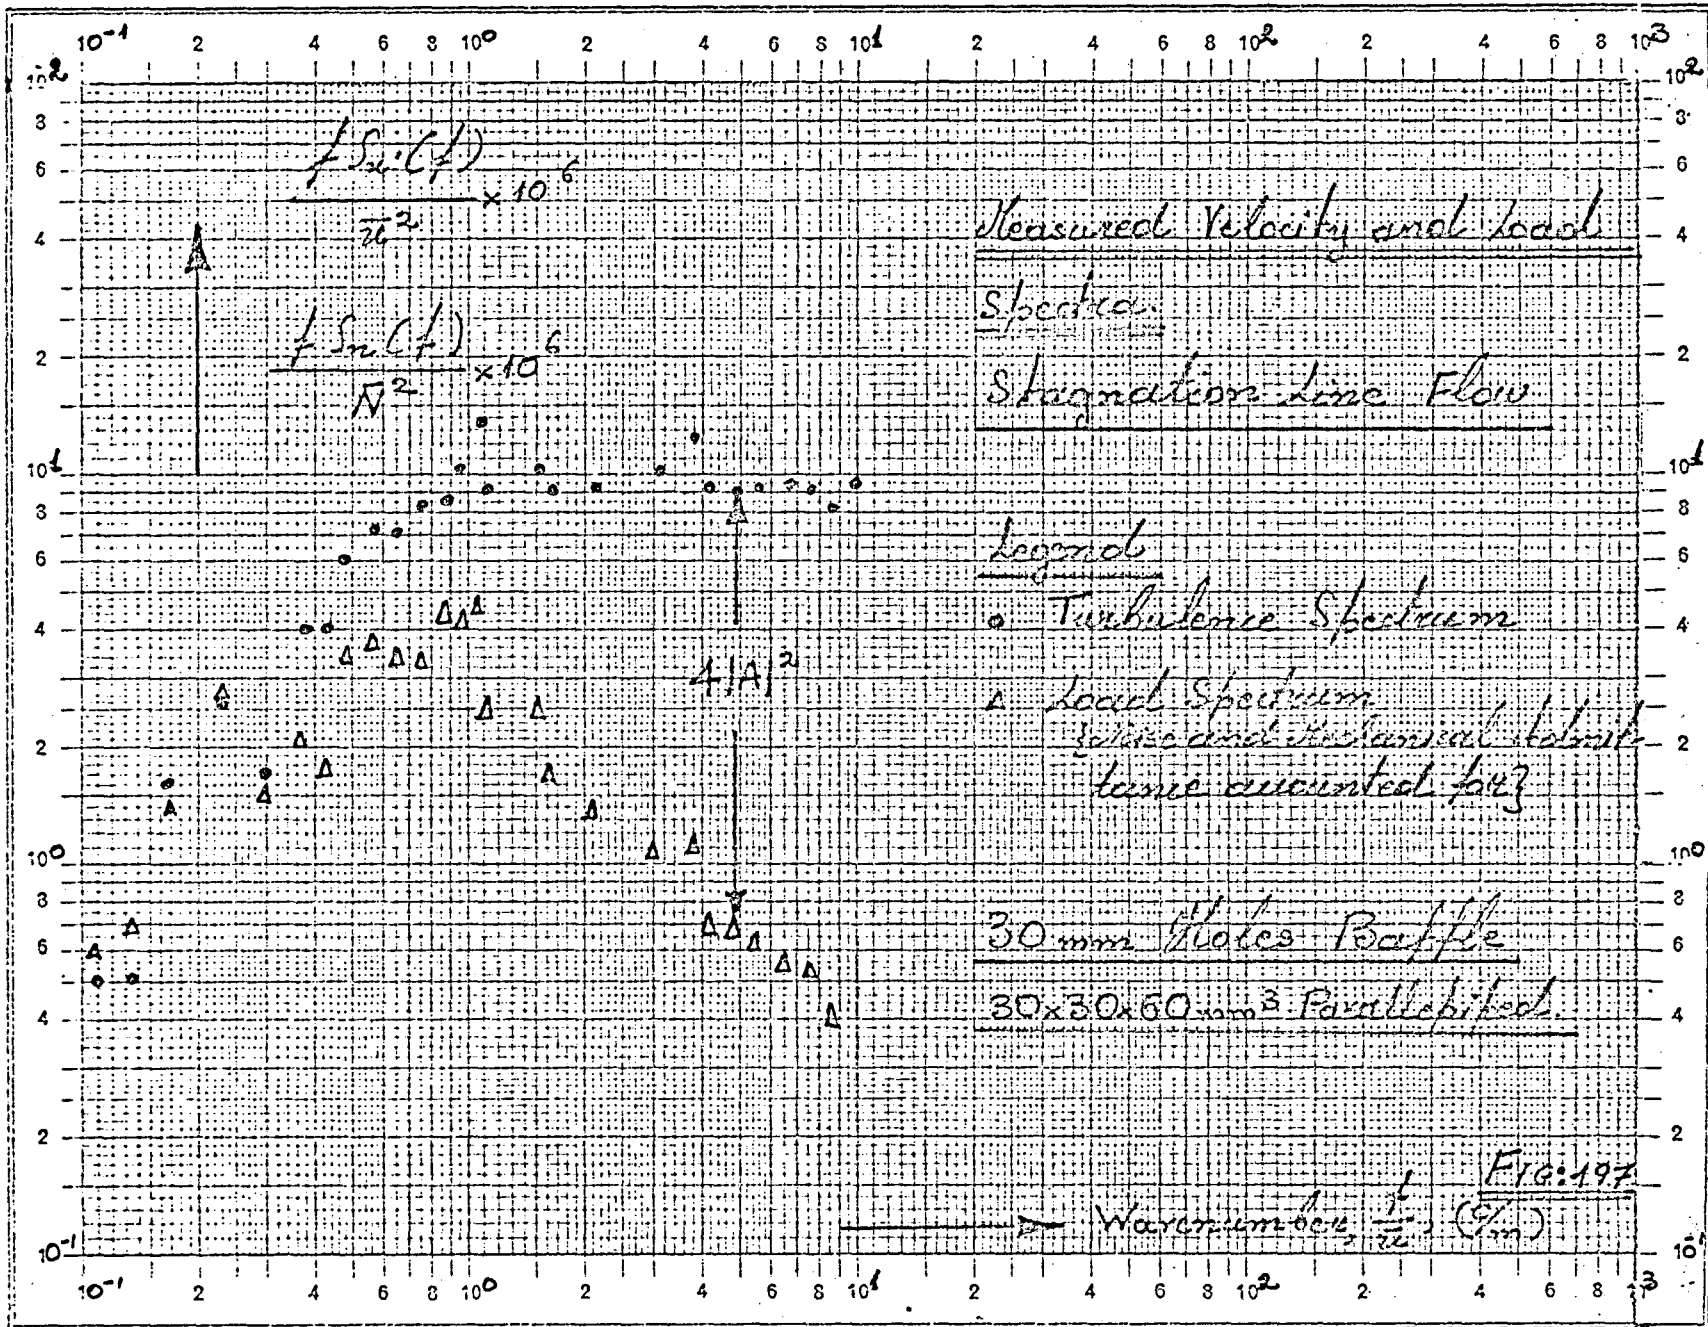 10-1 2 4 6 8 10⁰ 2 4 6 8 10¹ 2 4 6 8 10² 2 4 6 8 10³
10² 8 6 4 2 10¹ 8 6 4 2 10⁰ 8 6 4 2 10-1
f Su(f) / ū² × 10⁶
f Sn(f) / N̄² × 10⁶
Measured Velocity and Load
Spectra.
Stagnation Line Flow
Legend
o Turbulence Spectrum
Δ Load Spectrum
{Noise and Mechanical Admit
tance accounted for}
4|A|²
30 mm Holes Baffle
30×30×60 mm³ Parallepiped.
FIG:197
Wavenumber, f/ū, (c/m)
10² 8 6 4 2 10¹ 8 6 4 2 10⁰ 8 6 4 2 10-1
10-1 2 4 6 8 10⁰ 2 4 6 8 10¹ 2 4 6 8 10² 2 4 6 8